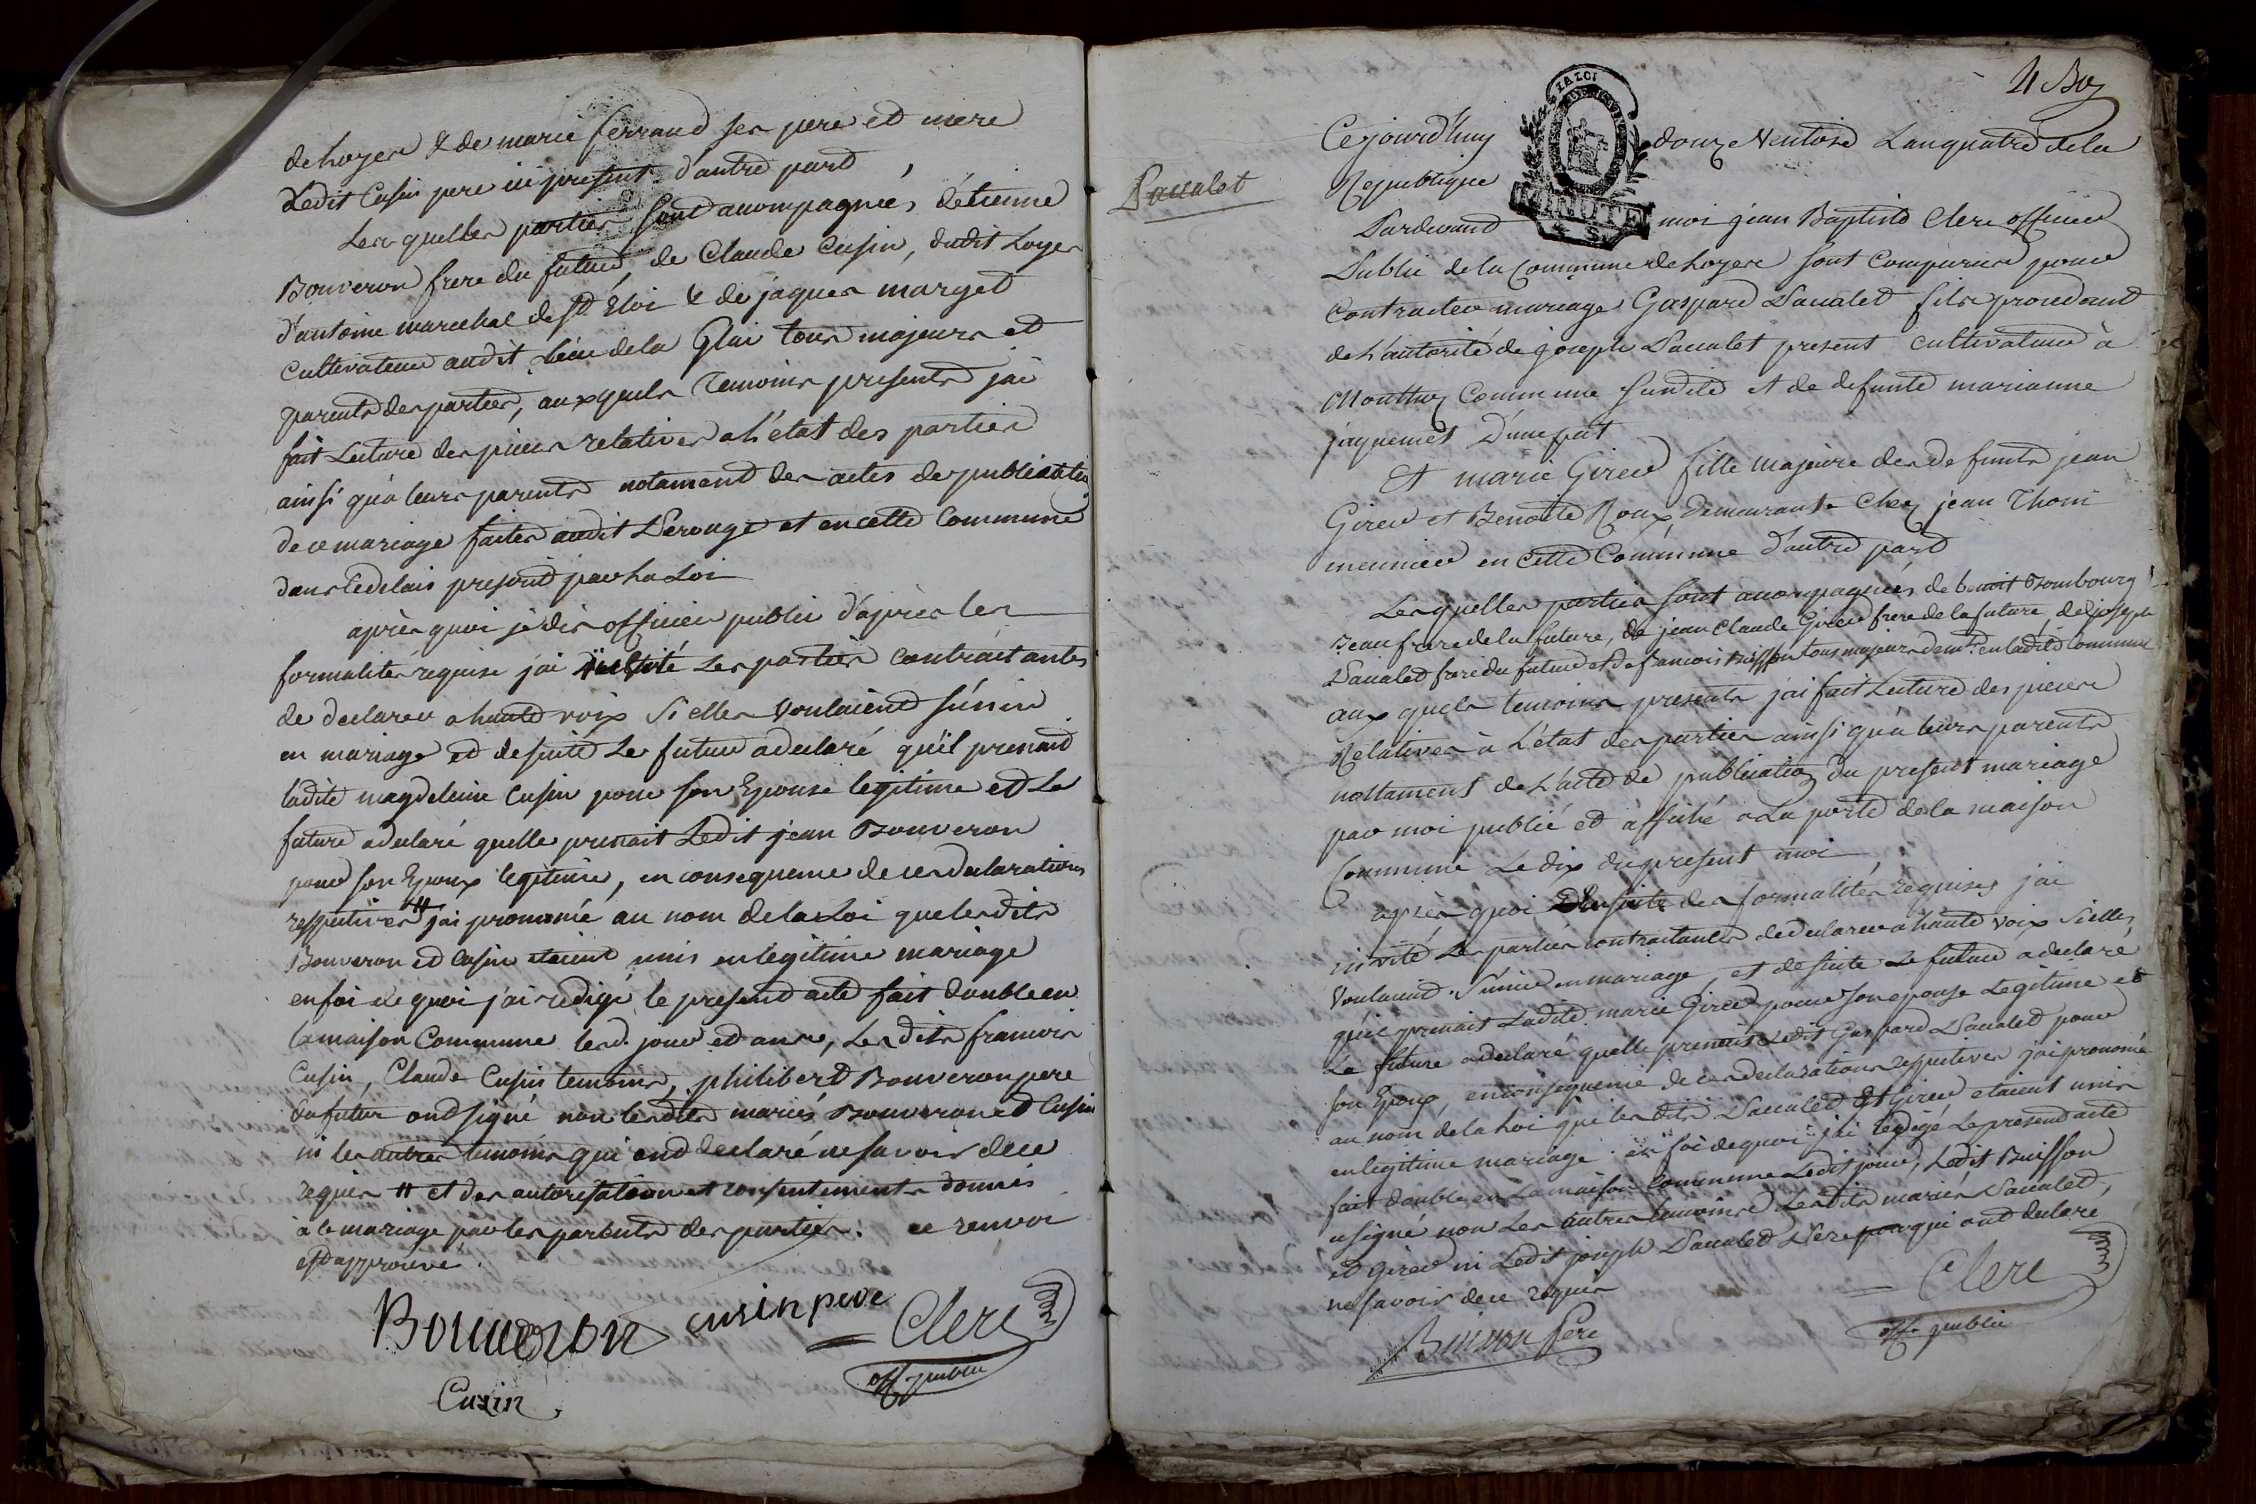 de Loyere & de marie ferrand ses pere et mere
Ledit Cusin pere ici present d'autre part
Lesquelles parties sont accompagnées, d'étienne
Bouveron frere du futur, de Claude Cusin, dudit Loyer
d'antoine marechal de St Eloi & de jaques marget
cultivateur audit lieu de la tous majeurs et
parents des parties, auxquels temoins presents jai
fait Lecture des pieces relatives a L'état des parties
ainsi qu'a leurs parents notament des actes de publication
de ce mariage faites audit Perouge et en cette Commune
dans le delais prescrit par La Loi
après quoi je dis officier public d'après les
formalités requise jai invité Les parties contraitantes
de declarer a haute voix si elles voulaient s'unir
en mariage et de suite Le futur a declaré qu'il prenait
ladite magdeleine Cusin pour son Epouse legitime et La
future a declaré quelle prenait Ledit jean Bouveron
pour son Epoux legitime, en consequence de ces declarations
respectives # jai prononcé au nom de la Loi que lesdits
Bouveron et Cusin etaient unis en legitime mariage
en foi de quoi j'ai redigé le present acte fait double en
la maison Commune lesd. jour et an , Lesdits francois
Cusin, Claude Cusin temoins, philibert Bouveron pere
du futur ont signé non lesdits mariés Bouveron et Cusin
ni les autres temoins qui ont declaré ne savoir de ce
requis # et des autorisation et consentements donnés
à ce mariage par les parents des parties. ce renvoi
est approuvé.
Bouveron cusin pere Clerc
off. public
Cusin
4
Paualet
Cejourd'huy douze Ventose Lan quatre de la
Republique
Pardevant moi jean Baptiste Clerc officier
Public de la Commune de Loyere sont comparus pour
contracter mariage Gaspard Paualet fils procedant
de L'autorité de joseph Paualet present cultivateur à
Monthuz Commune susdite et de defunte marianne
jaquemet D'une part
Et marie Girer fille majeure des defunts jean
Girer et Benoite Roux, demeurante chez jean Thoni
meunier en cette Commune d'autre part
Lesquelles parties sont accompagnées de benoit Bombourg
Beau frere de la future, de jean Claude Girer frere de la future, de joseph
Paualet frere du futur et de francois Buisson tous majeurs demt. en ladite Commune
aux quels temoins presents jai fait Lecture des pieces
Relatives à L'état des parties ainsi qu'a leurs parents
nottament de L'acte de publication du present mariage
par moi publié et affiché a La porte de la maison
Commune Le dix du present moi
après quoi Ensuite des formalités requises jai
invité Les parties contraitantes de declarer a haute voix si elles
voulaient s'unir en mariage, et de suite Le futur a declaré
qu'il prenait Ladite marie Girer pour son epouse Legitime et
La future a declaré quelle prenait Ledit Gaspard Paualet pour
son Epoux, en consequence de ces declarations respectives jai prononcé
au nom de la Loi que lesdits Paualet Et Girer etaient unis
en legitime mariage. en foi de quoi jai redigé Le present acte
fait double en La maison Commune Ledit jour, Ledit Buisson
a signé non Les autres temoins Lesdits mariés Paualet,
et Girer ni Ledit joseph Paualet Pere qui ont declaré
ne savoir de ce requis
Buisson Pere Clerc
off. public